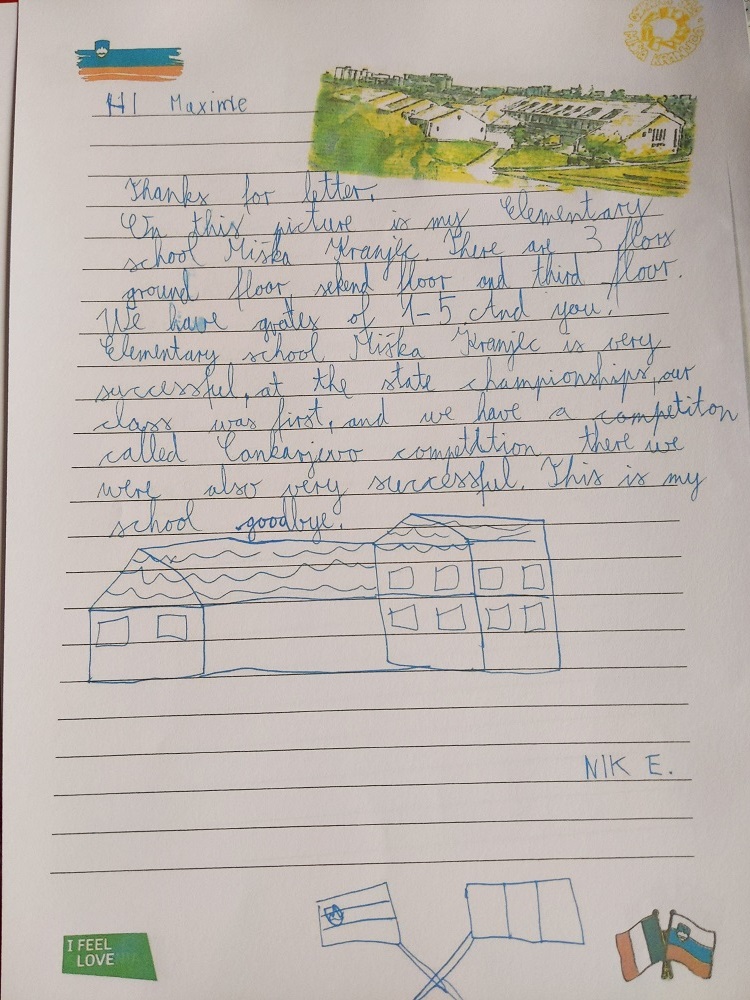 HI Maxime
Thanks for letter.
On this picture is my Elementary
school Miška Kranjec. There are 3 flors
ground floor, sekend floor and third floor.
We have grates of 1-5. And you?
Elementary school Miška Kranjec is very
successful, at the state championships, our
class was first, and we have a competiton
called Cankarjevo competition there we
were also very successful. This is my
school goodbye.
NIK E.
I FEEL
LOVE